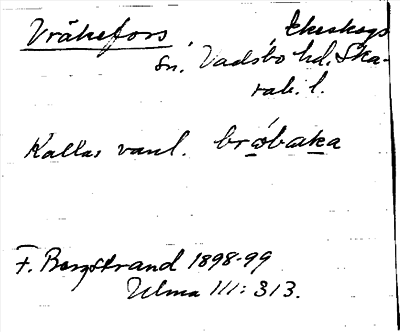 Vråkefors, Ekeskogs
sn. Vadsbo hd. Ska-
rab. l.
Kallas vanl. bråbaka
F. Bergstrand 1898-99
Ulma III: 313.